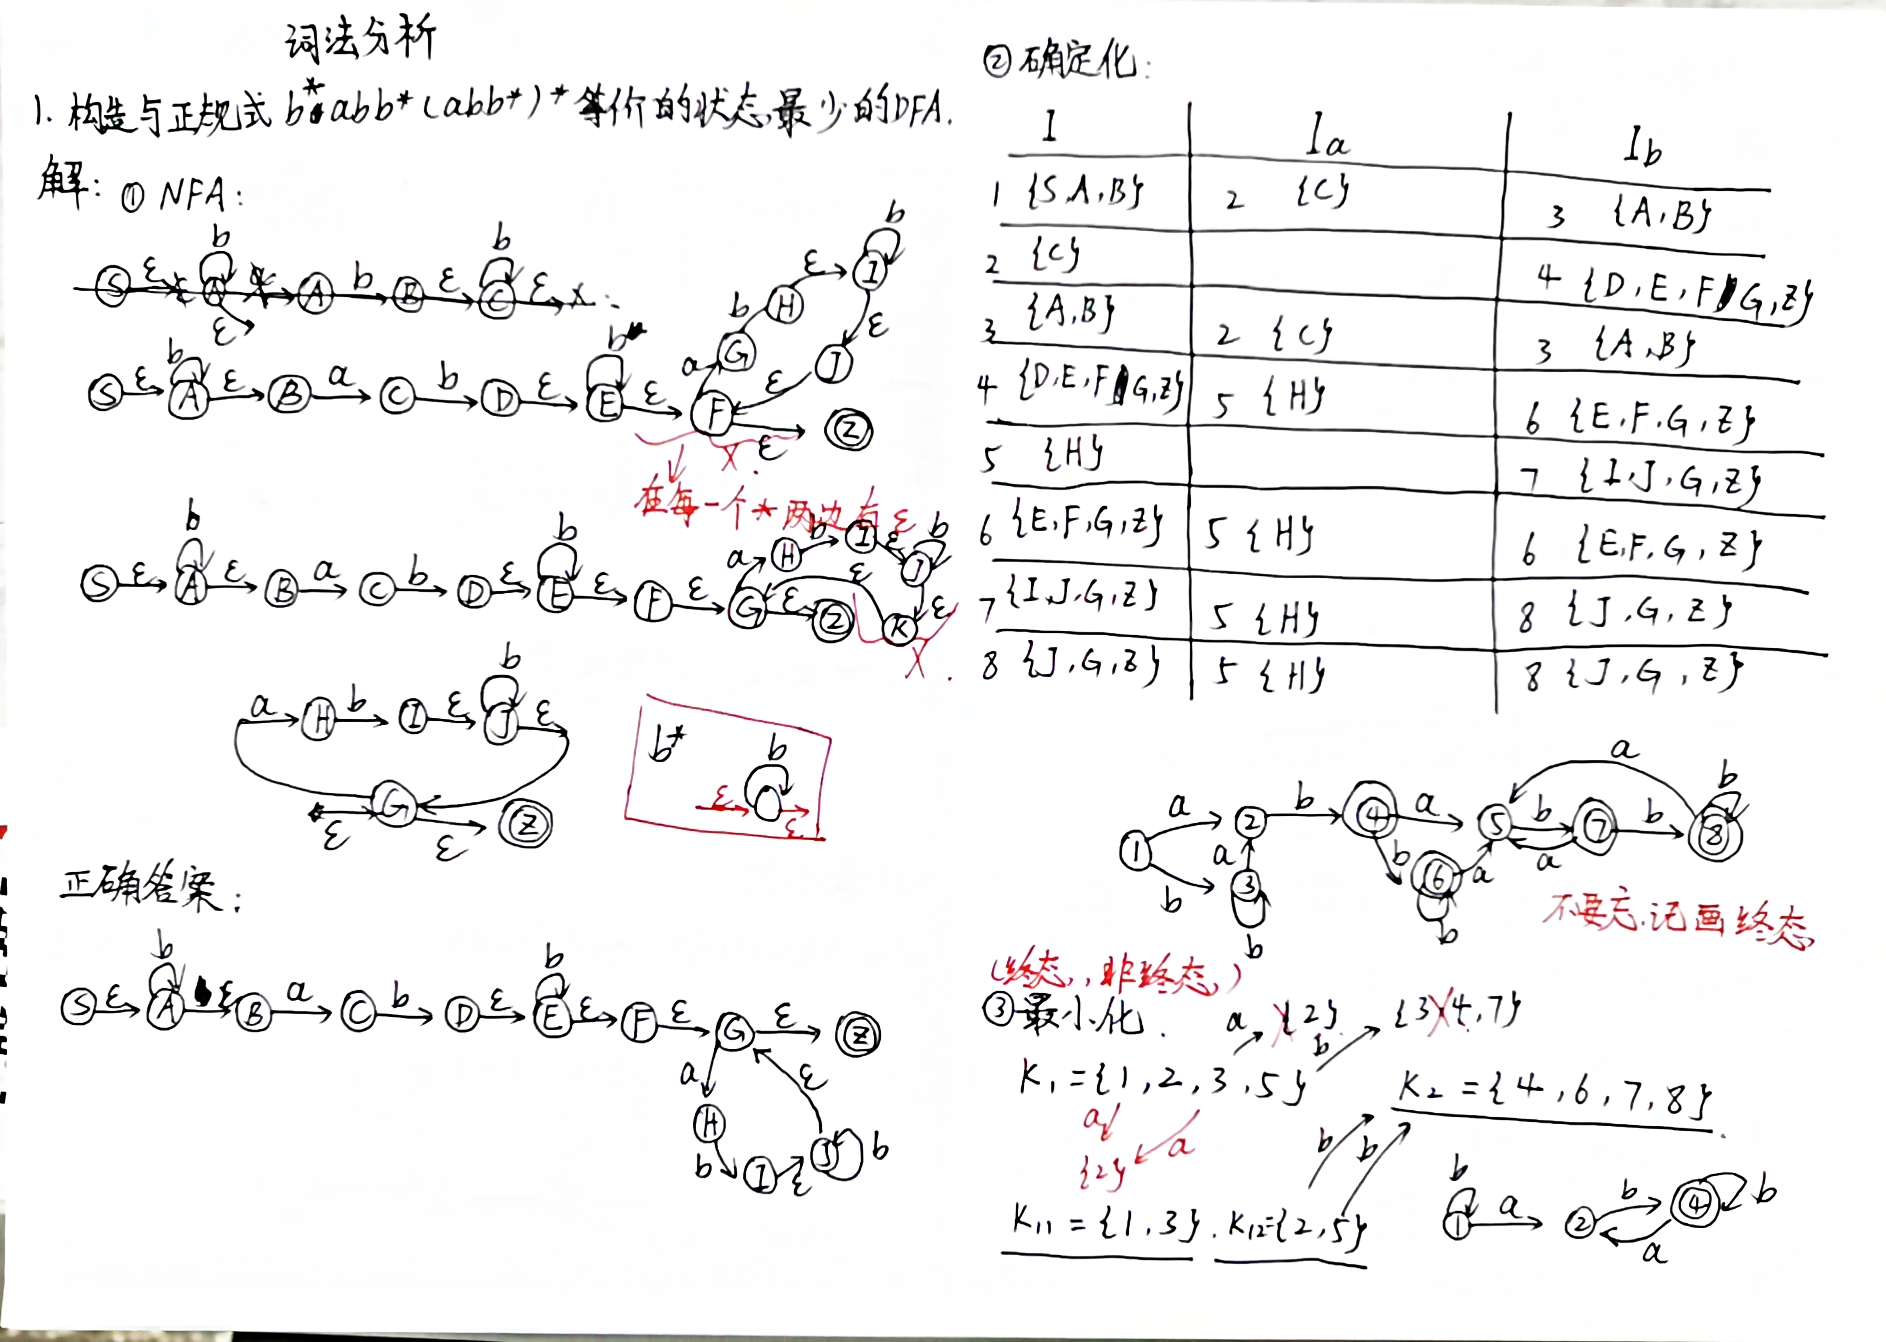 词法分析
1. 构造与正规式 b*abb*(abb*)* 等价的状态最少的DFA.
解: ① NFA:
S ε A b ε A b B ε C b ε
S ε A b ε B a C b D ε E b ε F ε Z
a G b H ε I b ε J ε
X.
在每一个*两边有ε
S ε A b ε B a C b D ε E b ε F ε G ε Z
a H b I ε J b ε K ε
X.
a H b I ε J b ε
ε G ε Z
b*
ε b ε
正确答案:
S ε A b ε B a C b D ε E b ε F ε G ε Z
a H b I ε J b ε
② 确定化:
I Ia Ib
1 {S,A,B} 2 {C} 3 {A,B}
2 {C} 4 {D,E,F,G,Z}
3 {A,B} 2 {C} 3 {A,B}
4 {D,E,F,G,Z} 5 {H} 6 {E,F,G,Z}
5 {H} 7 {I,J,G,Z}
6 {E,F,G,Z} 5 {H} 6 {E,F,G,Z}
7 {I,J,G,Z} 5 {H} 8 {J,G,Z}
8 {J,G,Z} 5 {H} 8 {J,G,Z}
1 a 2 b 4 a 5 b 7 b 8 b a
b 3 a b b 6 a b a
不要忘记画终态
(终态,非终态)
③ 最小化.
a {2} b {3,4,7}
K₁={1,2,3,5} K₂={4,6,7,8}
a a b b
{2}
K₁₁={1,3}. K₁₂={2,5}
b 1 a 2 b 4 b a